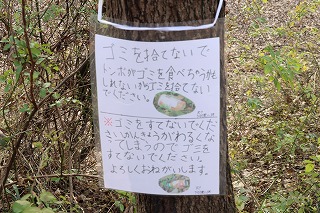 ゴミを捨てないで
トンボがゴミを食べちゃうかも
しれないからゴミを捨てない
でください。
※ゴミをすてないでくだ
さいかんきょうがわるくな
てしまうのでゴミを
すてないでください。
よろしくおねがいします。